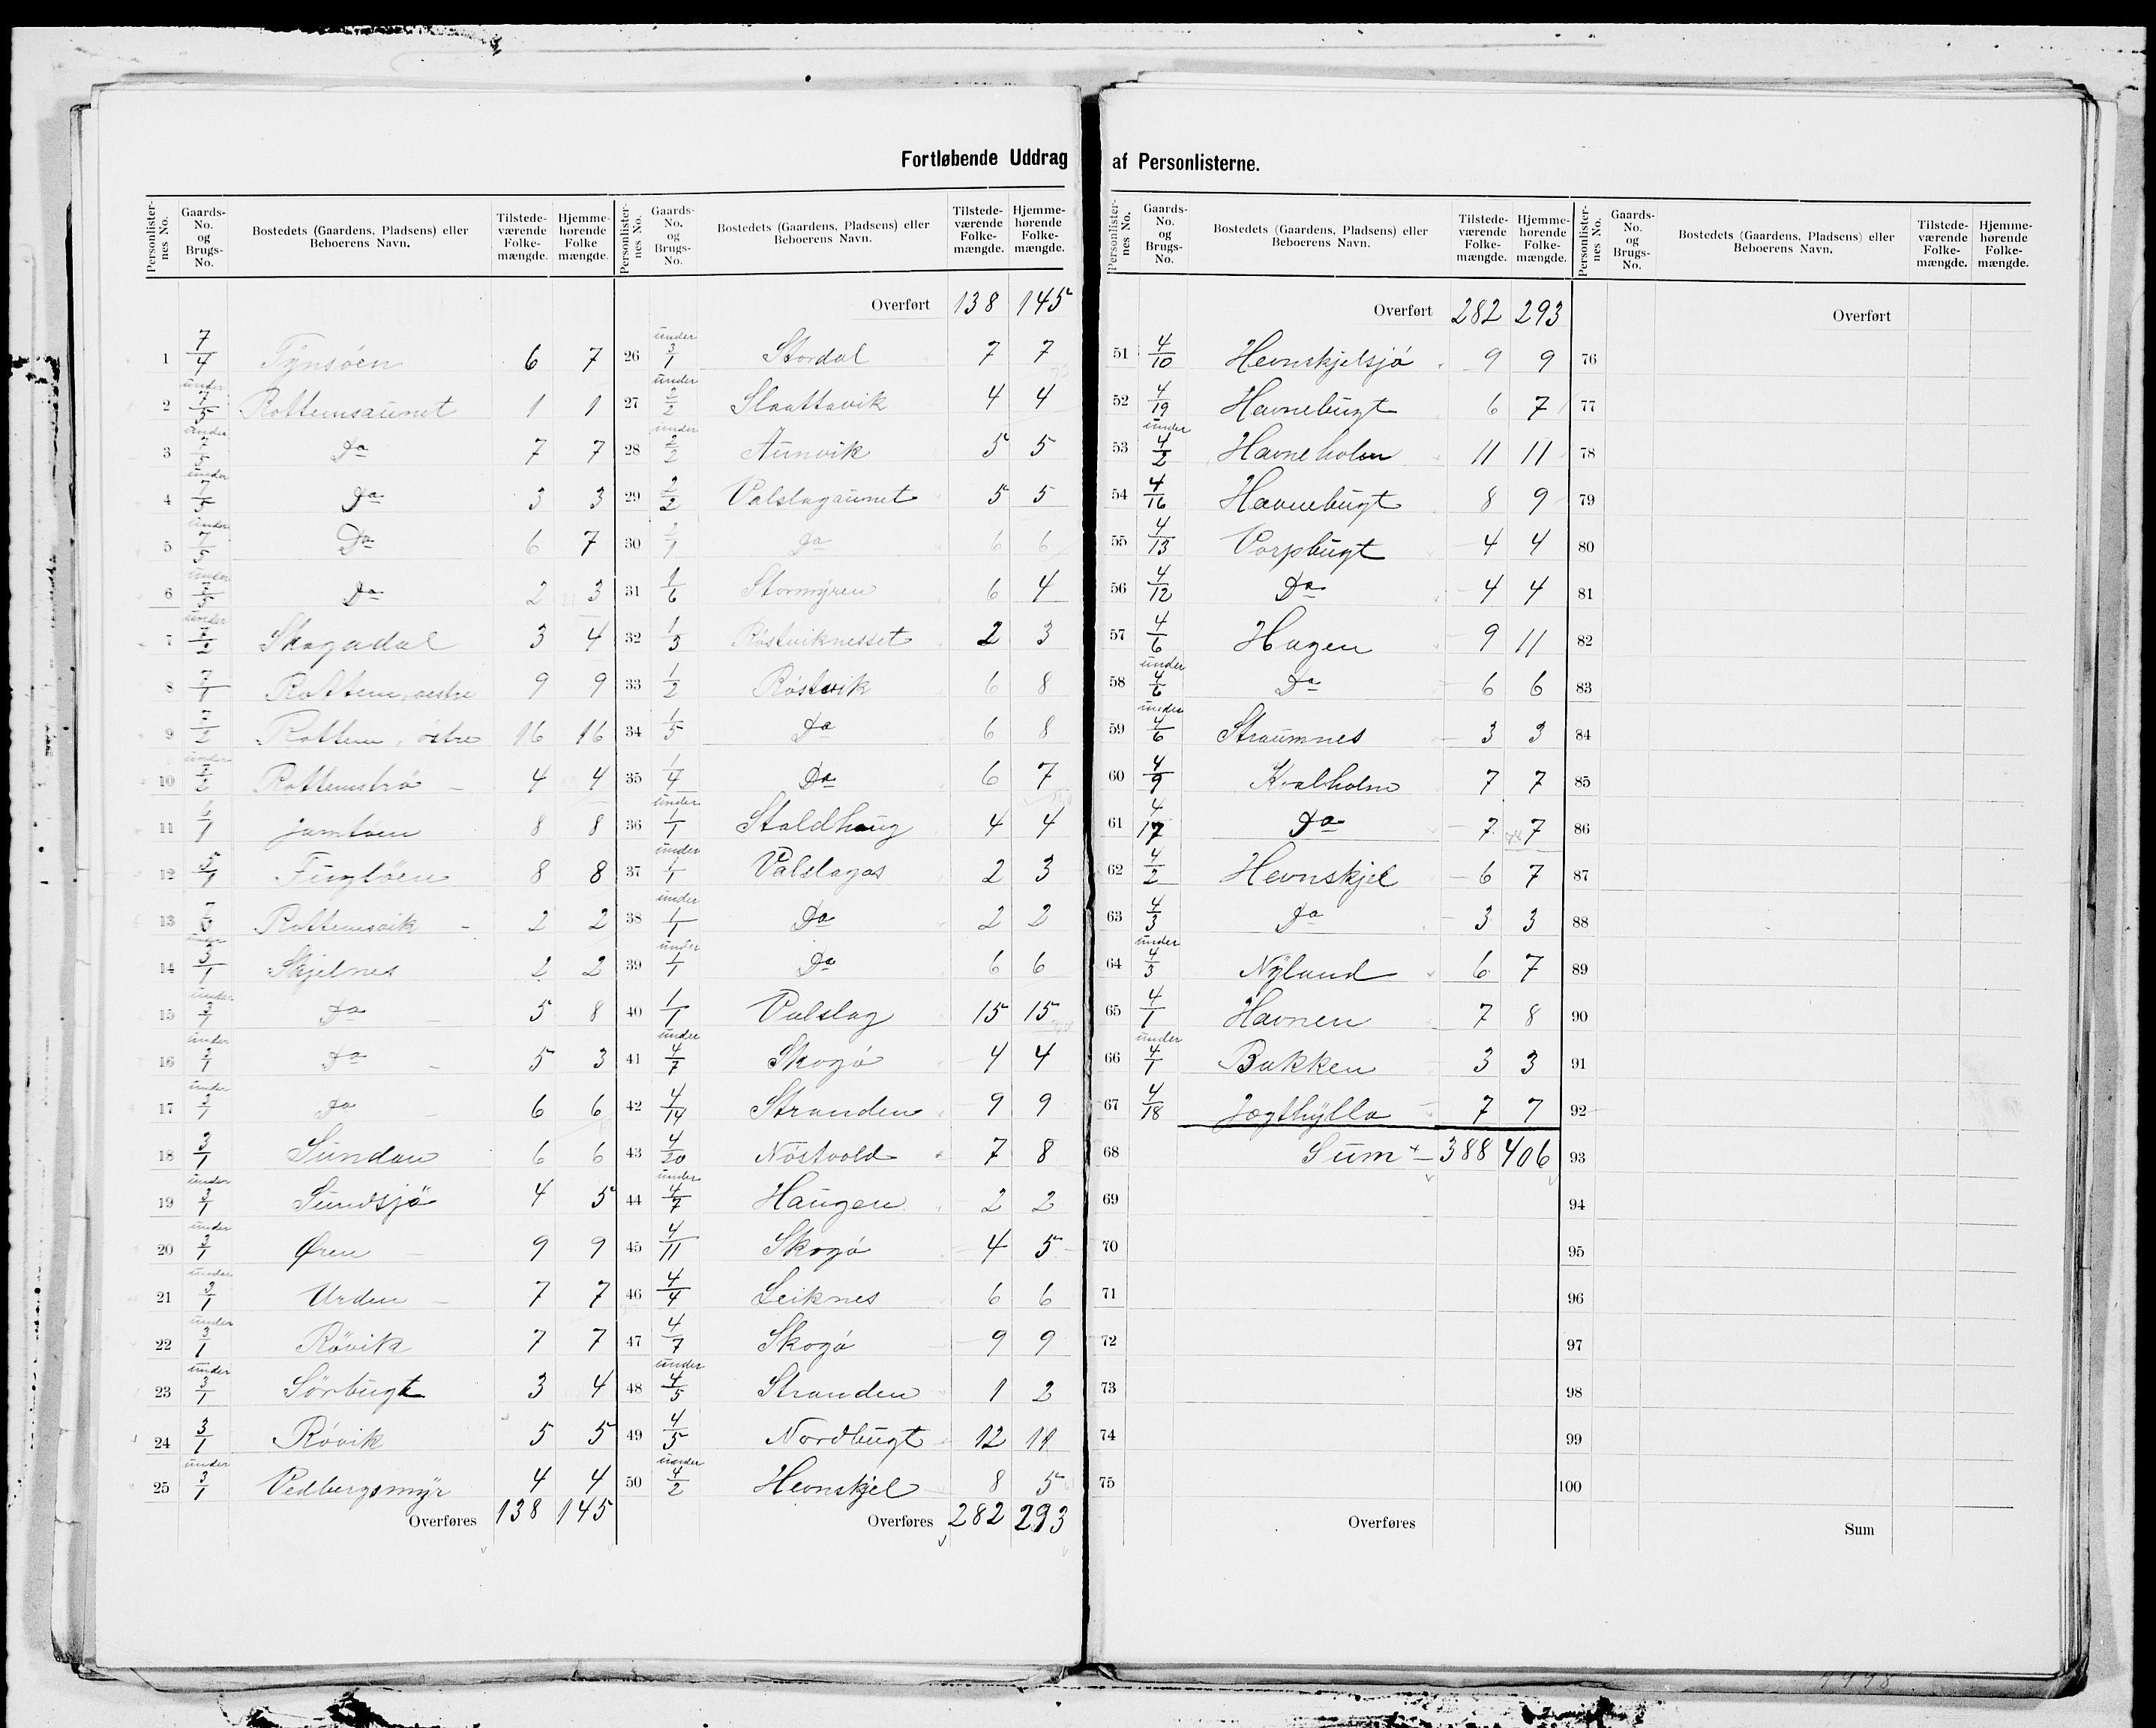 Fortløbende Uddrag af Personlisterne.
Personlister-nes No. | Gaards-No. og Brugs-No. | Bostedets (Gaardens, Pladsens) eller Beboerens Navn. | Tilstede-værende Folke-mængde. | Hjemme-hørende Folke mængde.
1 | 7/4 | Tynsøen | 6 | 7
2 | under 7/5 | Rottemsaunet | 1 | 1
3 | under 7/5 | Do | 7 | 7
4 | under 7/5 | Do | 3 | 3
5 | under 7/5 | Do | 6 | 7
6 | under 7/5 | Do | 2 | 3
7 | under 7/2 | Skogadal | 3 | 4
8 | 7/1 | Rottem, vestre | 9 | 9
9 | 7/2 | Rottem, östre | 16 | 16
10 | under 7/2 | Rottemsbrö | 4 | 4
11 | 6/1 | jamtøen | 8 | 8
12 | 5/1 | Fugløen | 8 | 8
13 | 7/6 | Rottemsvik | 2 | 2
14 | under 3/1 | Skjelnes | 2 | 2
15 | under 3/1 | Do | 5 | 8
16 | under 3/1 | Do | 5 | 3
17 | under 3/1 | Do | 6 | 6
18 | 3/1 | Sundan | 6 | 6
19 | under 3/1 | Sundsjö | 4 | 5
20 | under 3/1 | Øren | 9 | 9
21 | under 3/1 | Urden | 7 | 7
22 | under 3/1 | Rövik | 7 | 7
23 | under 3/1 | Sörbugt | 3 | 4
24 | 3/1 | Rövik | 5 | 5
25 | under 3/1 | Vedbergsmyr | 4 | 4
Overføres 138 145
Personlister-nes No. | Gaards-No. og Brugs-No. | Bostedets (Gaardens, Pladsens) eller Beboerens Navn. | Tilstede-værende Folke-mængde. | Hjemme-hørende Folke-mængde.
Overført 138 145
26 | under 3/1 | Stordal | 7 | 7
27 | under 2/2 | Slaattavik | 4 | 4
28 | under 2/2 | Aunvik | 5 | 5
29 | 2/2 | Valslagaunet | 5 | 5
30 | 2/1 | Do | 6 | 6
31 | 1/6 | Stormyren | 6 | 4
32 | 1/3 | Röstviknesset | 2 | 3
33 | 1/2 | Röstvik | 6 | 8
34 | 1/5 | Do | 6 | 8
35 | 1/4 | Do | 6 | 7
36 | under 1/1 | Staldhaug | 4 | 4
37 | under 1/1 | Valslagos | 2 | 3
38 | under 1/1 | Do | 2 | 2
39 | under 1/1 | Do | 6 | 6
40 | 1/1 | Valslag | 15 | 15
41 | under 4/7 | Skogö | 4 | 4
42 | 4/14 | Stranden | 9 | 9
43 | 4/20 | Nöstvold | 7 | 8
44 | under 4/7 | Haugen | 2 | 2
45 | 4/11 | Skogö | 4 | 5
46 | 4/4 | Leiknes | 6 | 6
47 | 4/7 | Skogö | 9 | 9
48 | under 4/5 | Stranden | 1 | 2
49 | 4/5 | Nordbugt | 12 | 11
50 | under 4/2 | Hevnskjel | 8 | 5
Overføres 282 293
Personlister-nes No. | Gaards-No. og Brugs-No. | Bostedets (Gaardens, Pladsens) eller Beboerens Navn. | Tilstede-værende Folke-mængde. | Hjemme-hørende Folke-mængde.
Overført 282 293
51 | 4/10 | Hevnskjelsjö | 9 | 9
52 | 4/19 | Havnebugt | 6 | 7
53 | under 4/2 | Havneholm | 11 | 11
54 | 4/16 | Havnebugt | 8 | 9
55 | 4/13 | Vorpbugt | 4 | 4
56 | 4/12 | Do | 4 | 4
57 | 4/6 | Hagen | 9 | 11
58 | under 4/6 | Do | 6 | 6
59 | under 4/6 | Straumnes | 3 | 3
60 | 4/9 | Kvalholm | 7 | 7
61 | 4/17 | Do | 7 | 7
62 | 4/2 | Hevnskjel | 6 | 7
63 | 4/3 | Do | 3 | 3
64 | under 4/3 | Nyland | 6 | 7
65 | 4/1 | Havnen | 7 | 8
66 | under 4/1 | Bakken | 3 | 3
67 | 4/18 | Jægthylla | 7 | 7
68 | Sum | 388 | 406
69
70
71
72
73
74
75
Overføres
Personlister-nes No. | Gaards-No. og Brugs-No. | Bostedets (Gaardens, Pladsens) eller Beboerens Navn. | Tilstede-værende Folke-mængde. | Hjemme-hørende Folke-mængde.
Overført
76
77
78
79
80
81
82
83
84
85
86
87
88
89
90
91
92
93
94
95
96
97
98
99
100
Sum